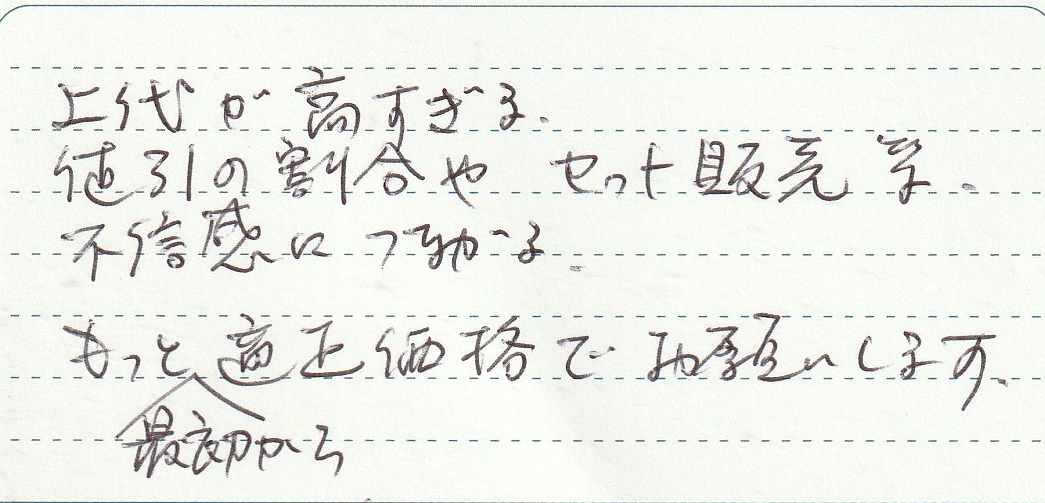 上代が高すぎる.
値引の割合や セット販売 等.
不信感に つながる.
もっと適正価格でお願いします.
最初から